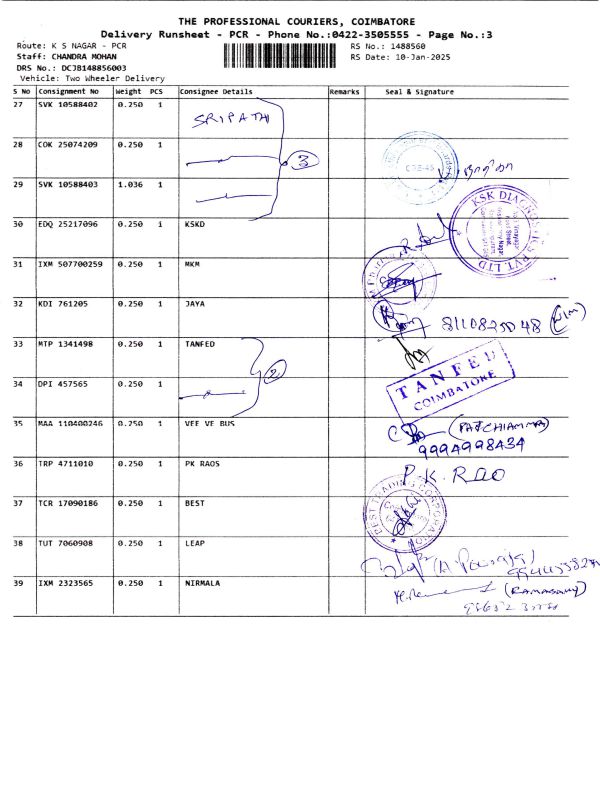 THE PROFESSIONAL COURIERS, COIMBATORE
Delivery Runsheet - PCR - Phone No.:0422-3505555 - Page No.:3
Route: K S NAGAR - PCR
RS No.: 1488560
Staff: CHANDRA MOHAN
RS Date: 10-Jan-2025
DRS No.: DCJB148856003
Vehicle: Two Wheeler Delivery
S No Consignment No Weight PCS Consignee Details Remarks Seal & Signature
27 SVK 10588402 0.250 1 SRIPATHI
28 COK 25074209 0.250 1 3
29 SVK 10588403 1.036 1
30 EDQ 25217096 0.250 1 KSKD KSK DIAGNOSTICS PVT. LTD
31 IXM 507700259 0.250 1 MKM
32 KDI 761205 0.250 1 JAYA
33 MTP 1341498 0.250 1 TANFED
34 DPI 457565 0.250 1 2 TANFED
COIMBATORE
35 MAA 110400246 0.250 1 VEE VE BUS (PATCHIAMMA)
9994998434
36 TRP 4711010 0.250 1 PK RAOS P.K. RAO
37 TCR 17090186 0.250 1 BEST BEST TRADING CORPORATION
38 TUT 7060908 0.250 1 LEAP
39 IXM 2323565 0.250 1 NIRMALA (RAMASAMY)